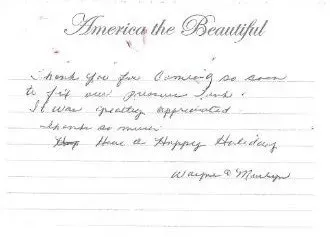 America the Beautiful
Thank you for coming so soon
to fix our pressure tank.
It was greatly appreciated.
Thanks so much
Have a Happy Holiday
Wayne & Marilyn